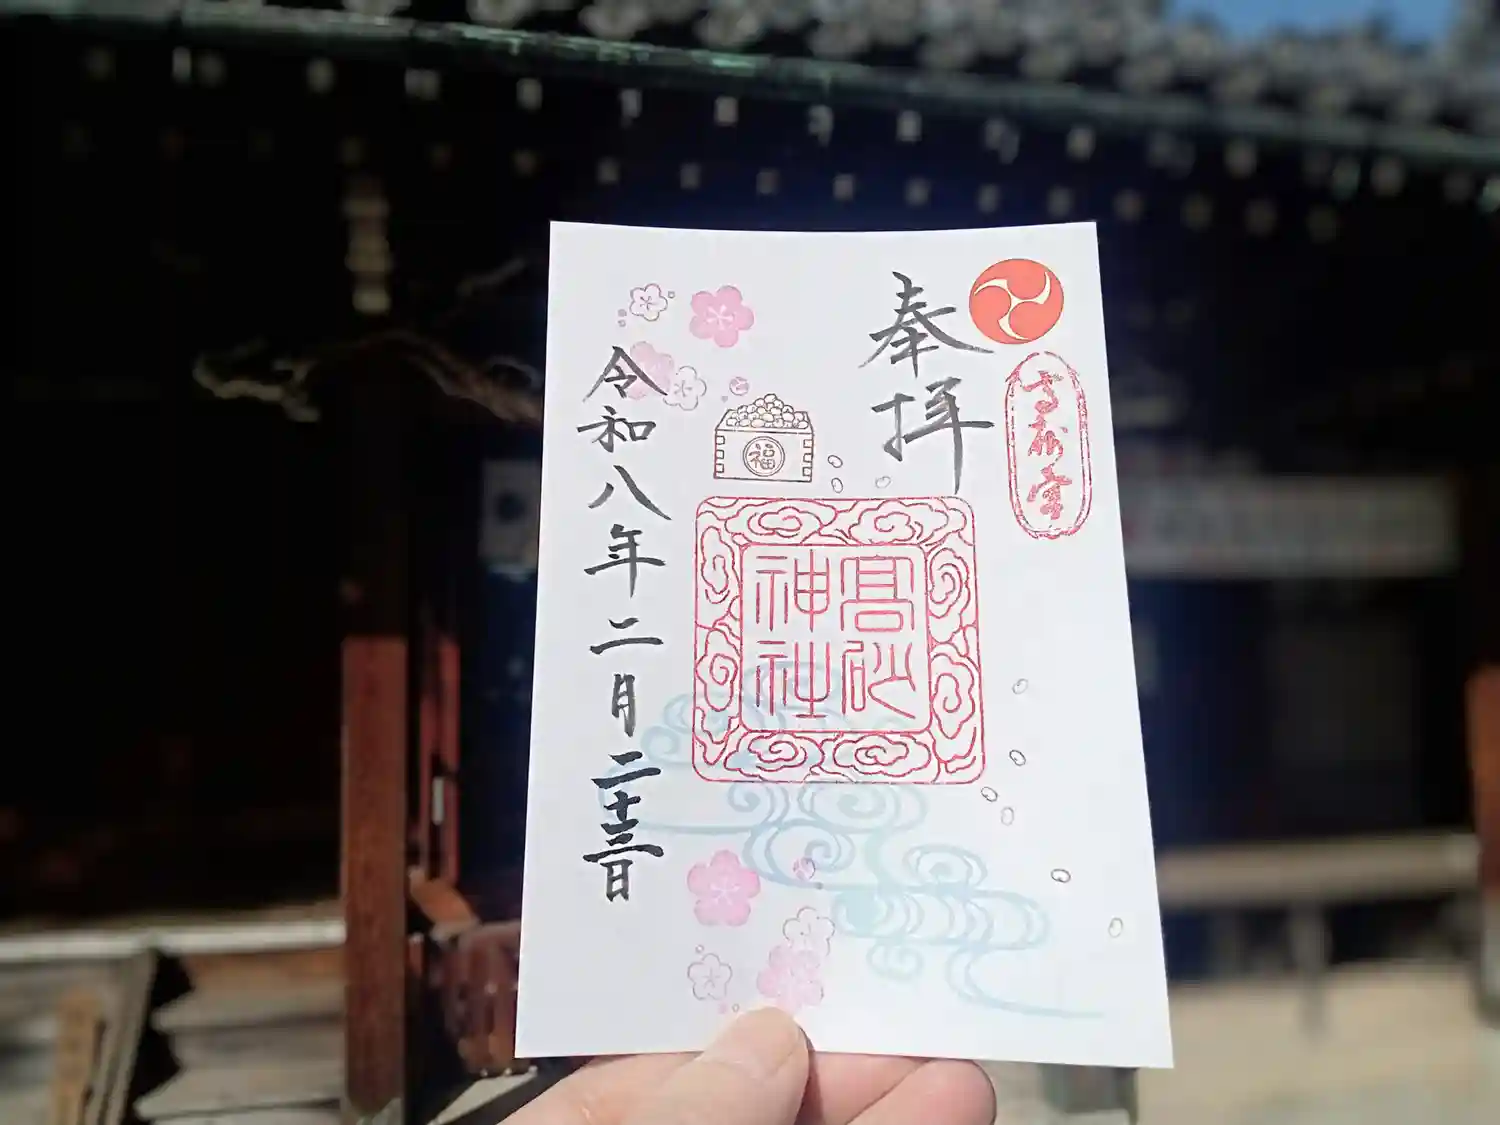 奉拝
高砂宮
髙砂
神社
福
令和八年二月二十三日